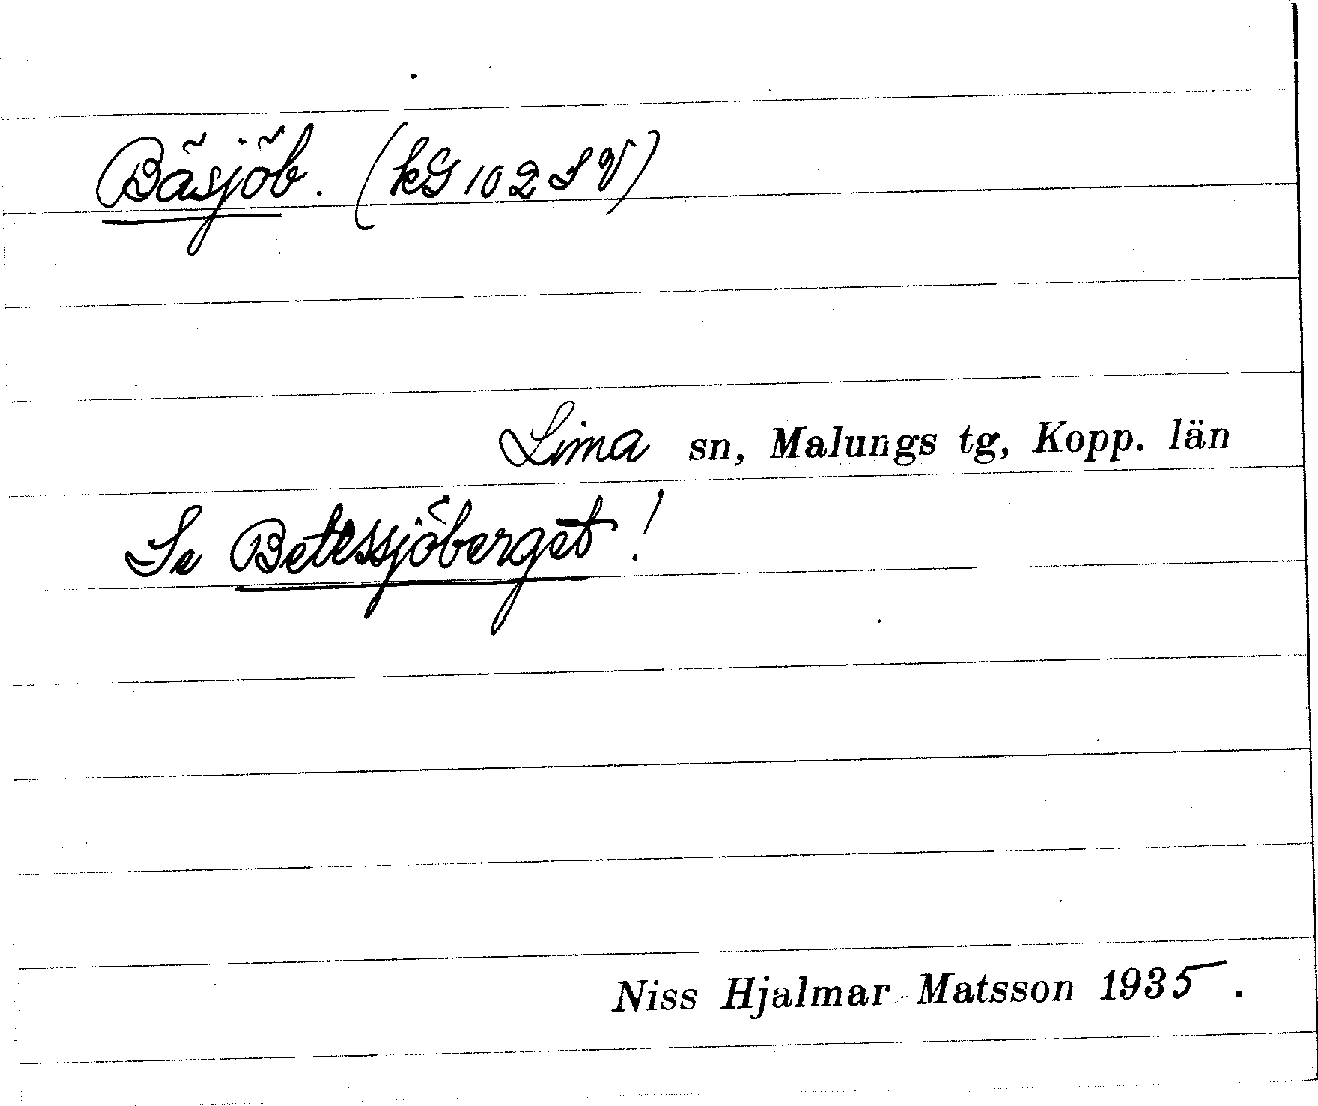 Bäsjöb. (kG 102 SV)
Lima sn, Malungs tg, Kopp. län
Se Betessjöberget!
Niss Hjalmar Matsson 1935.